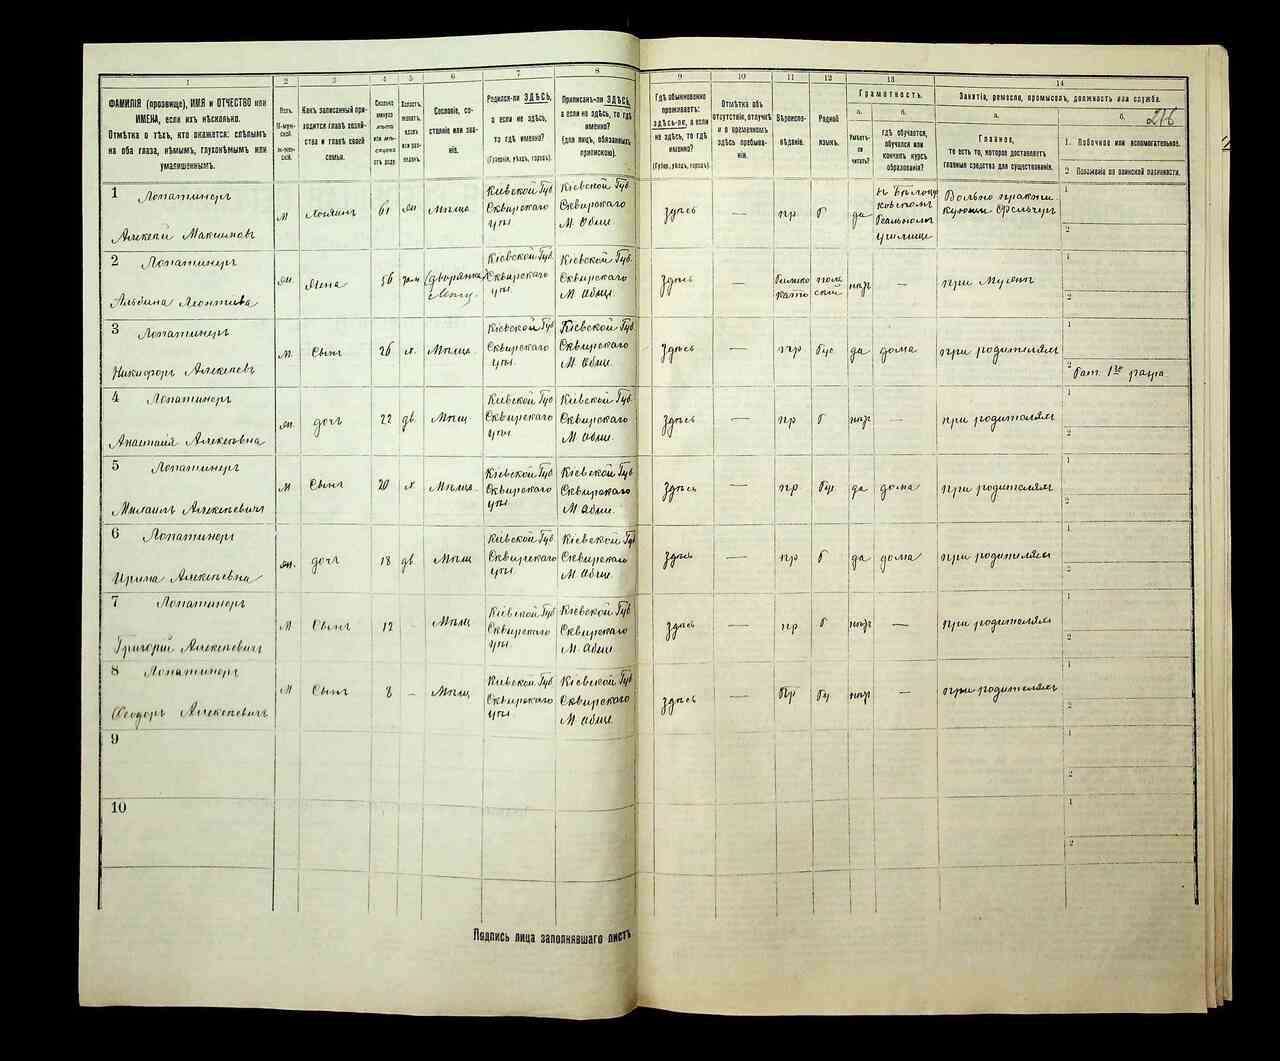 1 2 3 4 5 6 7 8 9 10 11 12 13 14
ФАМИЛІЯ (прозвище), ИМЯ и ОТЧЕСТВО или
ИМЕНА, если ихъ нѣсколько.
Отмѣтка о тѣхъ, кто окажется: слѣпымъ
на оба глаза, нѣмымъ, глухонѣмымъ или
умалишеннымъ.
Полъ.
М-мужской.
Ж-женскій.
Какъ записанный приходится
главѣ хозяйства
и главѣ своей
семьи.
Сколько
минуло
лѣтъ
или мѣсяцевъ
отъ роду
Холостъ,
женатъ,
вдовъ
или разведенъ.
Сословіе, состояніе
или званіе.
Родился-ли ЗДѢСЬ,
а если не здѣсь,
то гдѣ именно?
(Губернія, уѣздъ, городъ).
Приписанъ-ли ЗДѢСЬ,
а если не здѣсь, то гдѣ
именно?
(для лицъ, обязанныхъ
припиской).
Гдѣ обыкновенно
проживаетъ:
здѣсь-ли, а если
не здѣсь, то гдѣ
именно?
(Губер., уѣздъ, городъ).
Отмѣтка объ
отсутствіи, отлучкѣ
и о временномъ
здѣсь пребываніи.
Вѣроисповѣданіе.
Родной
языкъ.
Грамотность.
а.
Умѣетъ-ли
читать?
б.
Гдѣ обучается,
обучался или
кончилъ курсъ
образованія?
Занятіе, ремесло, промыселъ, должность или служба.
а.
Главное,
то есть то, которое доставляетъ
главныя средства для существованія.
б.
216
1. Побочное или вспомогательное.
2 Положеніе по воинской повинности.
1 Лопатинеръ
Алексѣй Максимовъ
М 61 жн Мѣща
Кіевской Губ
Сквирскаго
уѣз
Кіевской Губ
Сквирскаго
М. Общ.
здѣсь — пр Р да
въ Бѣлоцерковскомъ
Реальномъ
училище
Вольно практикующій
Фельдшеръ
1
2
2 Лопатинеръ
Альбина Леонтіева
жн. Жена 56 зам (дворянка)
Кіевской Губ
Сквирскаго
уѣз.
Кіевской Губ.
Сквирскаго
М Общ.
здѣсь — Римско
като
польскій нѣтъ — при Мужѣ
1
2
3 Лопатинеръ
Никифоръ Алексѣевъ
М. Сынъ 26 х. Мѣща
Кіевской Губ
Сквирскаго
уѣз.
Кіевской Губ.
Сквирскаго
М. Общ.
здѣсь — пр Рус да дома при родителяхъ
1
2 Рат. 1го разра.
4 Лопатинеръ
Анастасія Алексѣевна
жн. дочь 22 дв. Мѣщ
Кіевской Губ
Сквирскаго
уѣз.
Кіевской Губ.
Сквирскаго
М Общ.
здѣсь — пр Р нѣтъ — при родителяхъ
1
2
5 Лопатинеръ
Михаилъ Алексѣевичъ
М Сынъ 20 х Мѣща
Кіевской Губ
Сквирскаго
уѣз.
Кіевской Губ.
Сквирскаго
М Общ.
здѣсь — пр Рус да дома при родителяхъ
1
2
6 Лопатинеръ
Ирина Алексѣевна
жн. дочь 18 дв. Мѣщ
Кіевской Губ
Сквирскаго
уѣз.
Кіевской Губ
Сквирскаго
М Общ.
здѣсь — пр Р да дома при родителяхъ
1
2
7 Лопатинеръ
Григорій Алексѣевичъ
М Сынъ 12 - Мѣщ
Кіевской Губ
Сквирскаго
уѣз.
Кіевской Губ
Сквирскаго
М. Общ.
здѣсь — пр Р нѣтъ — при родителяхъ
1
2
8 Лопатинеръ
Ѳеодоръ Алексѣевичъ
М Сынъ 8 - Мѣщ
Кіевской Губ
Сквирскаго
уѣз.
Кіевской Губ
Сквирскаго
М Общ.
здѣсь — Пр Ру нѣтъ - при родителяхъ
1
2
9
1
2
10
1
2
Подпись лица заполнявшаго листъ